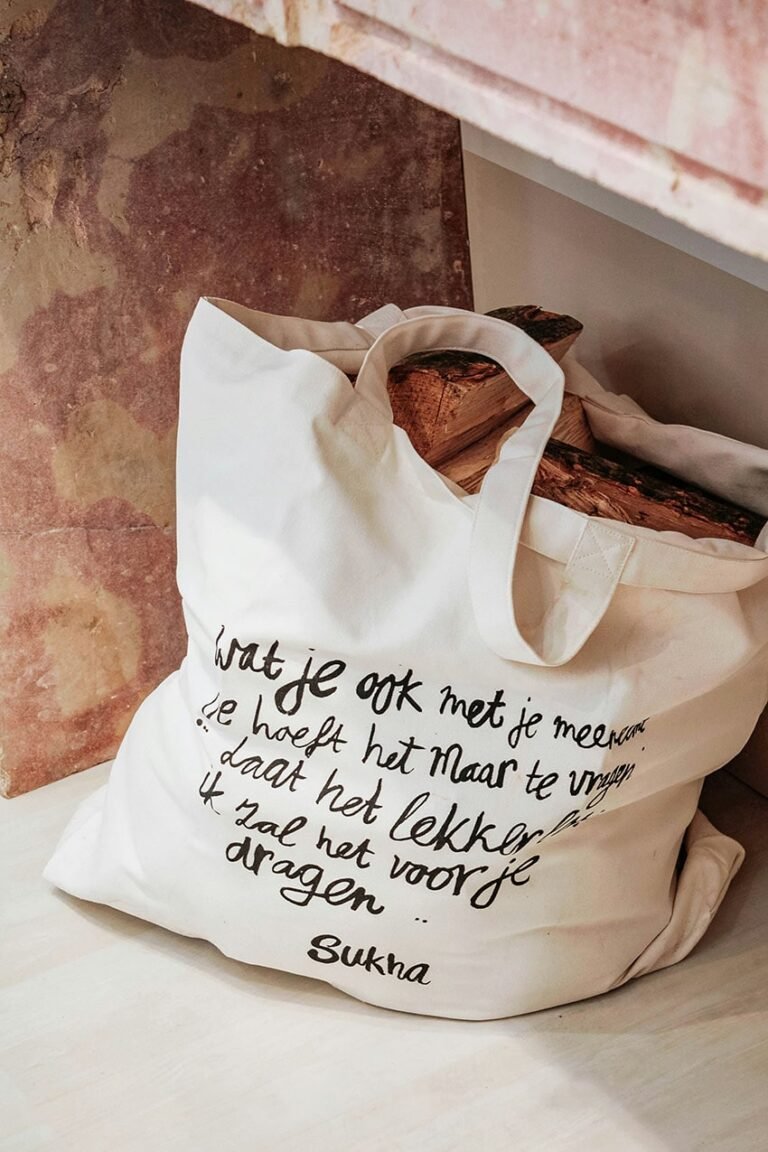 Wat je ook met je
je hoeft het maar te vragen
laat het lekker
ik zal het voor je
dragen ..
Sukha